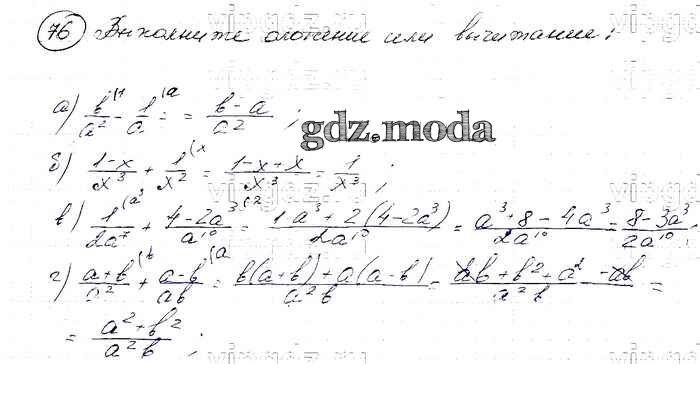 76 Выполните сложение или вычитание:
а) b/a² - 1/a = = (b-a)/a² ;
gdz.moda
б) (1-x)/x³ + 1/x² = (1-x+x)/x³ = 1/x³ ;
в) 1/2a⁷ + (4-2a³)/a¹⁰ = (1a³+2(4-2a³))/2a¹⁰ = (a³+8-4a³)/2a¹⁰ = (8-3a³)/2a¹⁰ ;
г) (a+b)/a² + (a-b)/ab = (b(a+b)+a(a-b))/a²b = (ab+b²+a²-ab)/a²b =
= (a²+b²)/a²b ;